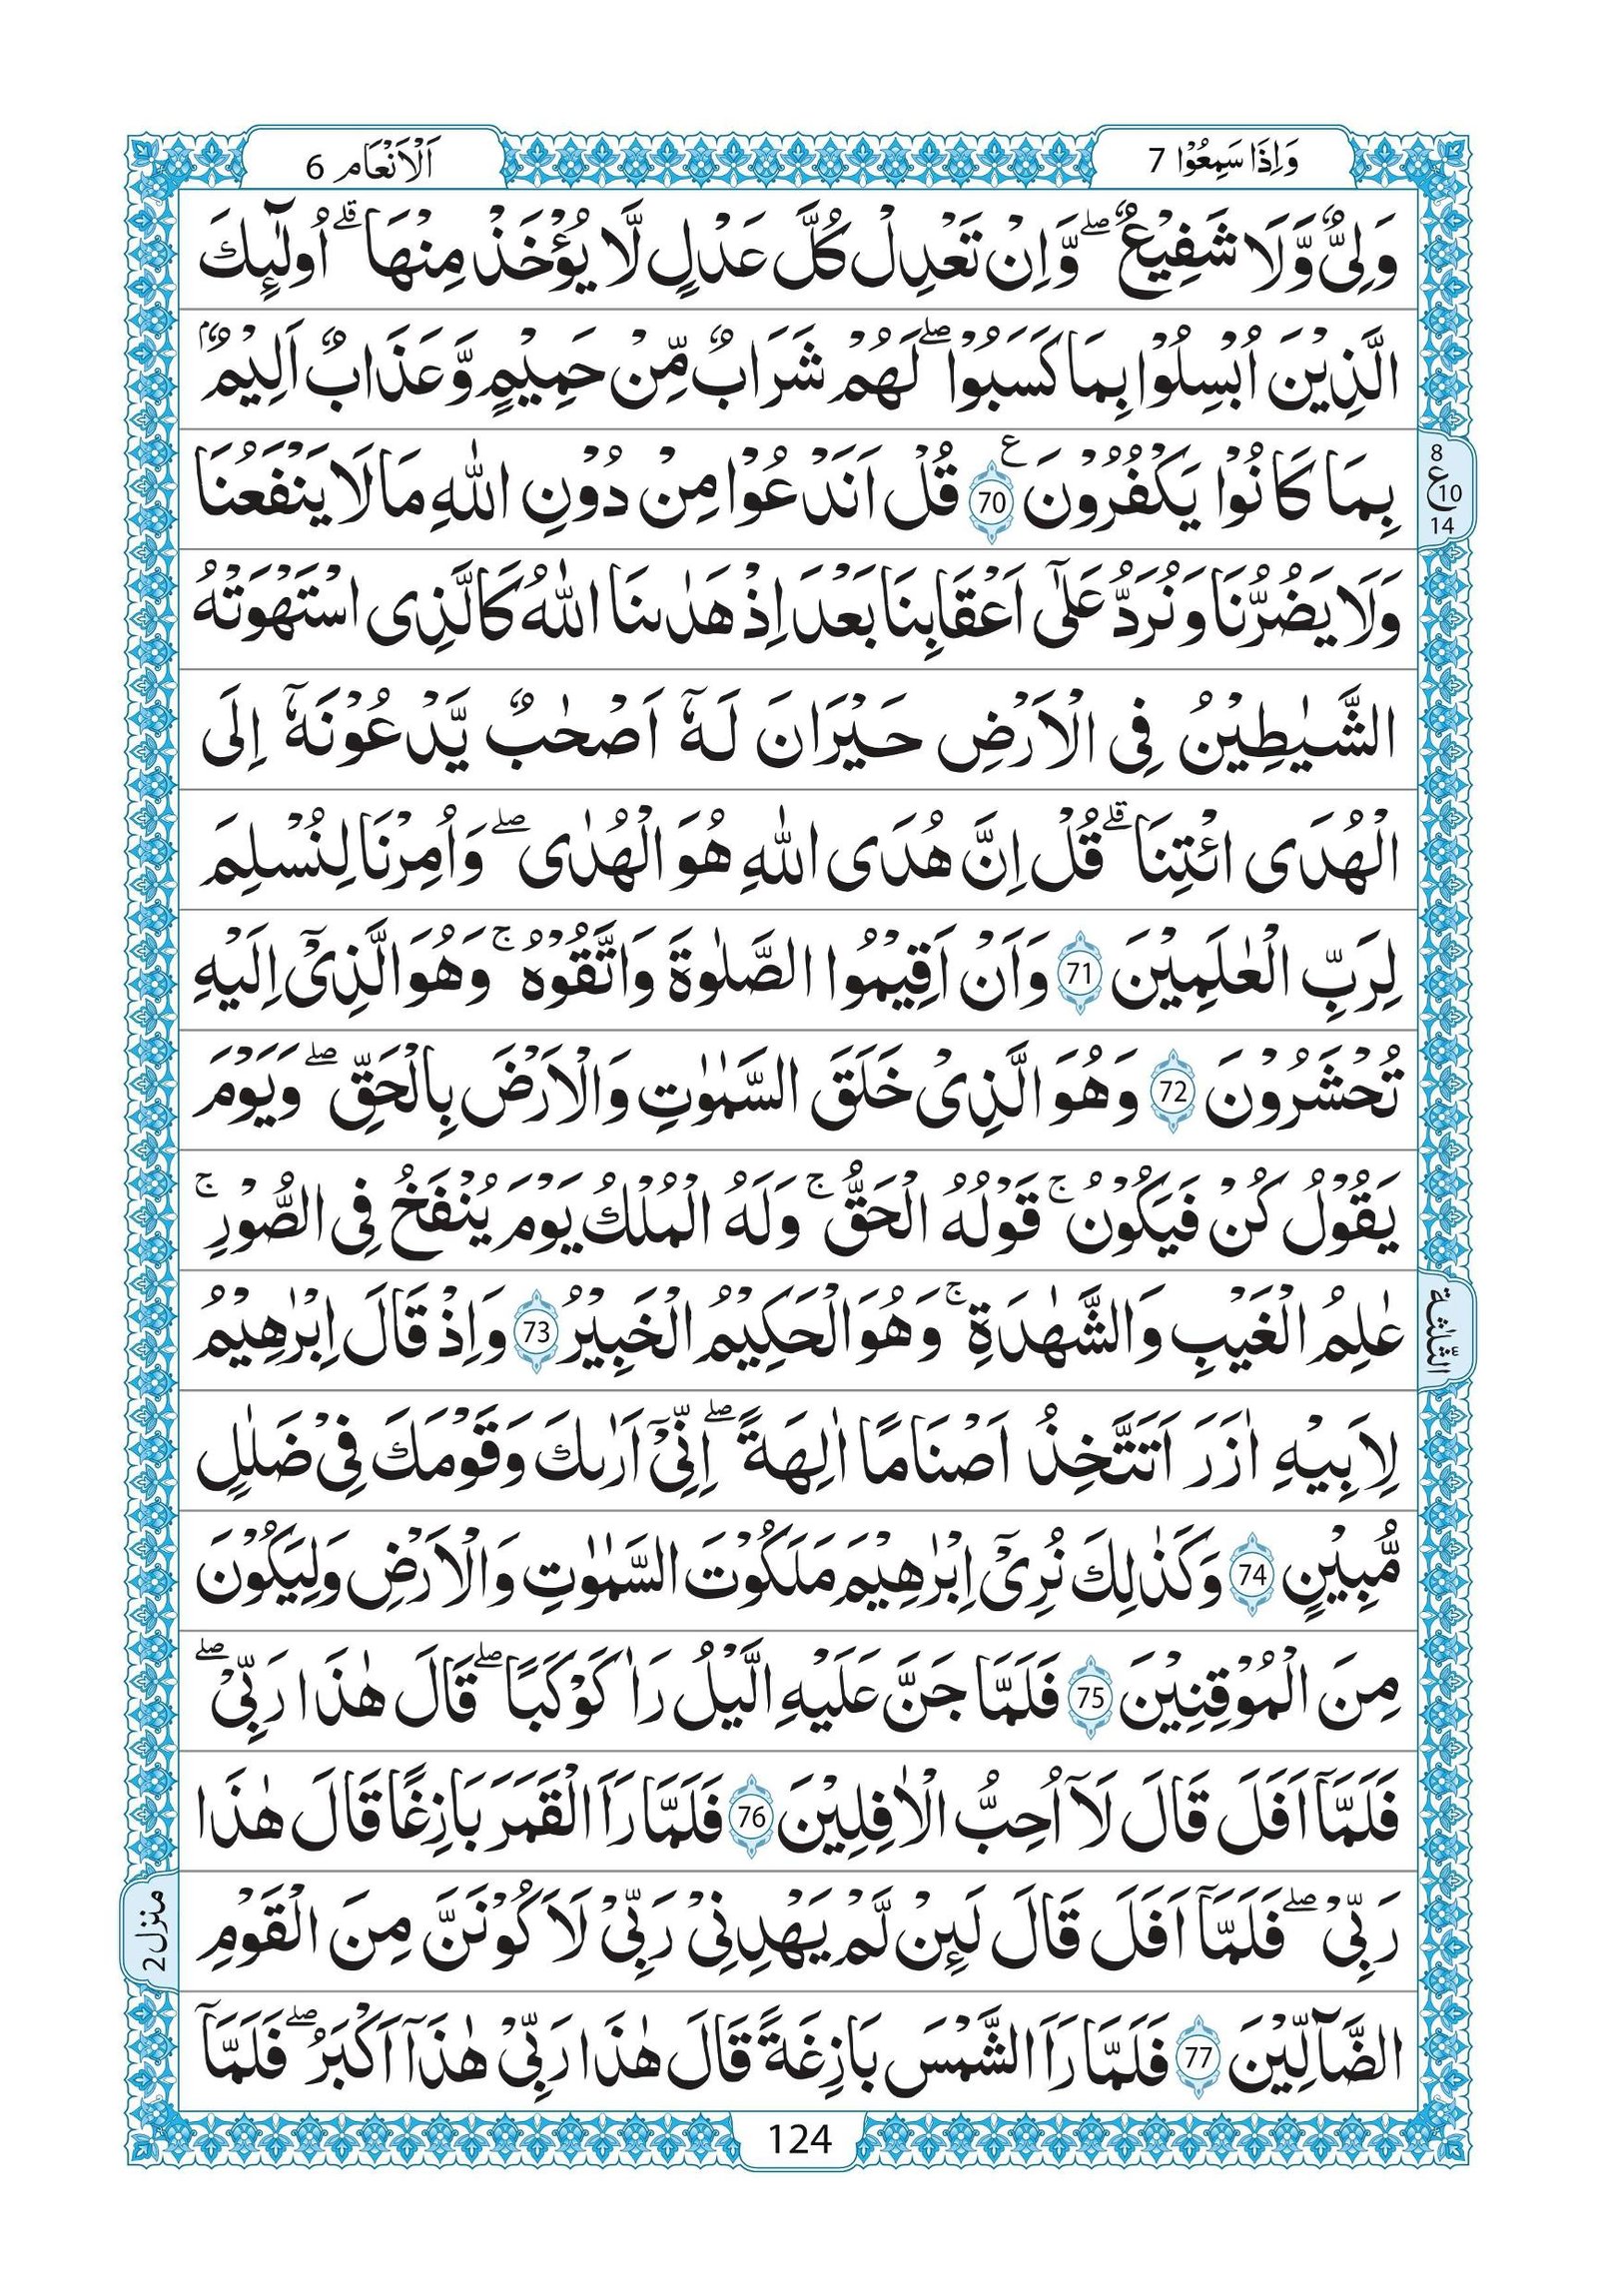 وَاِذَا سَمِعُوْا 7
اَلْاَنْعَام 6
وَلِىٌّ وَّلَا شَفِيْعٌ ۖ وَّاِنْ تَعْدِلْ كُلَّ عَدْلٍ لَّا يُؤْخَذْ مِنْهَا ۗ اُولٰٓئِكَ
الَّذِيْنَ اُبْسِلُوْا بِمَا كَسَبُوْا ۖ لَهُمْ شَرَابٌ مِّنْ حَمِيْمٍ وَّعَذَابٌ اَلِيْمٌۢ
بِمَا كَانُوْا يَكْفُرُوْنَ ع 70 قُلْ اَنَدْعُوْا مِنْ دُوْنِ اللّٰهِ مَا لَا يَنْفَعُنَا
8
ع 10
14
وَلَا يَضُرُّنَا وَنُرَدُّ عَلٰٓى اَعْقَابِنَا بَعْدَ اِذْ هَدٰىنَا اللّٰهُ كَالَّذِى اسْتَهْوَتْهُ
الشَّيٰطِيْنُ فِى الْاَرْضِ حَيْرَانَ لَهٗٓ اَصْحٰبٌ يَّدْعُوْنَهٗٓ اِلَى
الْهُدَى ائْتِنَا ۗ قُلْ اِنَّ هُدَى اللّٰهِ هُوَ الْهُدٰى ۖ وَاُمِرْنَا لِنُسْلِمَ
لِرَبِّ الْعٰلَمِيْنَ 71 وَاَنْ اَقِيْمُوا الصَّلٰوةَ وَاتَّقُوْهُ ۚ وَهُوَ الَّذِىْٓ اِلَيْهِ
تُحْشَرُوْنَ 72 وَهُوَ الَّذِىْ خَلَقَ السَّمٰوٰتِ وَالْاَرْضَ بِالْحَقِّ ۖ وَيَوْمَ
يَقُوْلُ كُنْ فَيَكُوْنُ ۚ قَوْلُهُ الْحَقُّ ۚ وَلَهُ الْمُلْكُ يَوْمَ يُنْفَخُ فِى الصُّوْرِ ۚ
عٰلِمُ الْغَيْبِ وَالشَّهٰدَةِ ۚ وَهُوَ الْحَكِيْمُ الْخَبِيْرُ 73 وَاِذْ قَالَ اِبْرٰهِيْمُ
الثلٰثة
لِاَبِيْهِ اٰزَرَ اَتَتَّخِذُ اَصْنَامًا اٰلِهَةً ۖ اِنِّىْٓ اَرٰىكَ وَقَوْمَكَ فِىْ ضَلٰلٍ
مُّبِيْنٍ 74 وَكَذٰلِكَ نُرِىْٓ اِبْرٰهِيْمَ مَلَكُوْتَ السَّمٰوٰتِ وَالْاَرْضِ وَلِيَكُوْنَ
مِنَ الْمُوْقِنِيْنَ 75 فَلَمَّا جَنَّ عَلَيْهِ الَّيْلُ رَاٰ كَوْكَبًا ۖ قَالَ هٰذَا رَبِّىْ ۖ
فَلَمَّآ اَفَلَ قَالَ لَآ اُحِبُّ الْاٰفِلِيْنَ 76 فَلَمَّا رَاَ الْقَمَرَ بَازِغًا قَالَ هٰذَا
رَبِّىْ ۖ فَلَمَّآ اَفَلَ قَالَ لَئِنْ لَّمْ يَهْدِنِىْ رَبِّىْ لَاَكُوْنَنَّ مِنَ الْقَوْمِ
منزل 2
الضَّآلِّيْنَ 77 فَلَمَّا رَاَ الشَّمْسَ بَازِغَةً قَالَ هٰذَا رَبِّىْ هٰذَآ اَكْبَرُ ۖ فَلَمَّآ
124